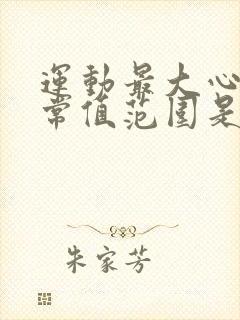 運動最大心
常值范围是
朱家芳